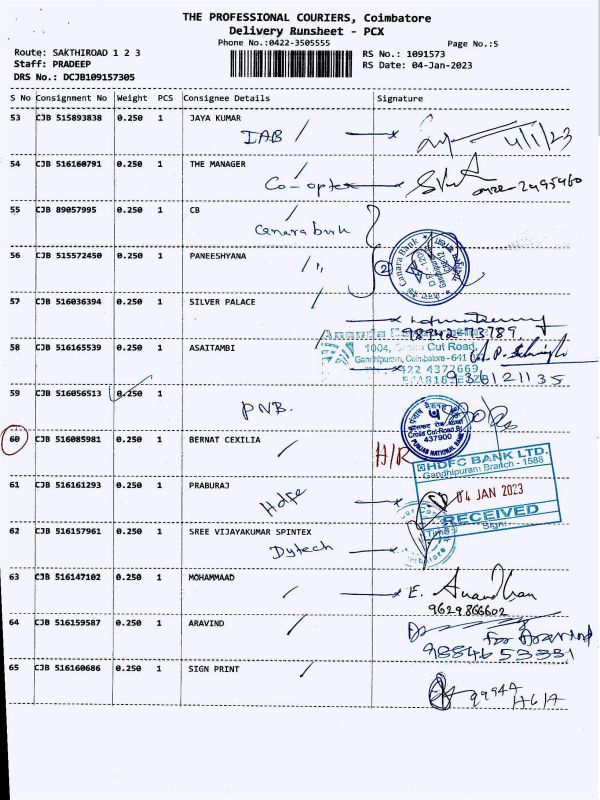 THE PROFESSIONAL COURIERS, Coimbatore
Delivery Runsheet - PCX
Phone No.:0422-3505555
Page No.:5
Route: SAKTHIROAD 1 2 3
RS No.: 1091573
Staff: PRADEEP
RS Date: 04-Jan-2023
DRS No.: DCJB109157305
S No Consignment No Weight PCS Consignee Details Signature
53 CJB 515893838 0.250 1 JAYA KUMAR
IAB 4/1/23
54 CJB 516160791 0.250 1 THE MANAGER
Co-optex
55 CJB 89057995 0.250 1 CB
Canara bank
Canara Bank
56 CJB 515572450 0.250 1 PANEESHYANA
2
57 CJB 516036394 0.250 1 SILVER PALACE
98942 73789
58 CJB 516165539 0.250 1 ASAITAMBI
1004, Cross Cut Road,
Gandhipuram, Coimbatore - 641
422 4372669
59 CJB 516056513 0.250 1
PNB.
Cross Cut Road Br
437900
PUNJAB NATIONAL BANK
60 CJB 516085981 0.250 1 BERNAT CEXILIA
H/R
HDFC BANK LTD.
Gandhipuram Branch - 1588
61 CJB 516161293 0.250 1 PRABURAJ
Hdfc
04 JAN 2023
RECEIVED
Time: Sign:
62 CJB 516157961 0.250 1 SREE VIJAYAKUMAR SPINTEX
Dytech
63 CJB 516147102 0.250 1 MOHAMMAAD
E. Anandhan
9629866602
64 CJB 516159587 0.250 1 ARAVIND
for Aravind
9884653331
65 CJB 516160686 0.250 1 SIGN PRINT